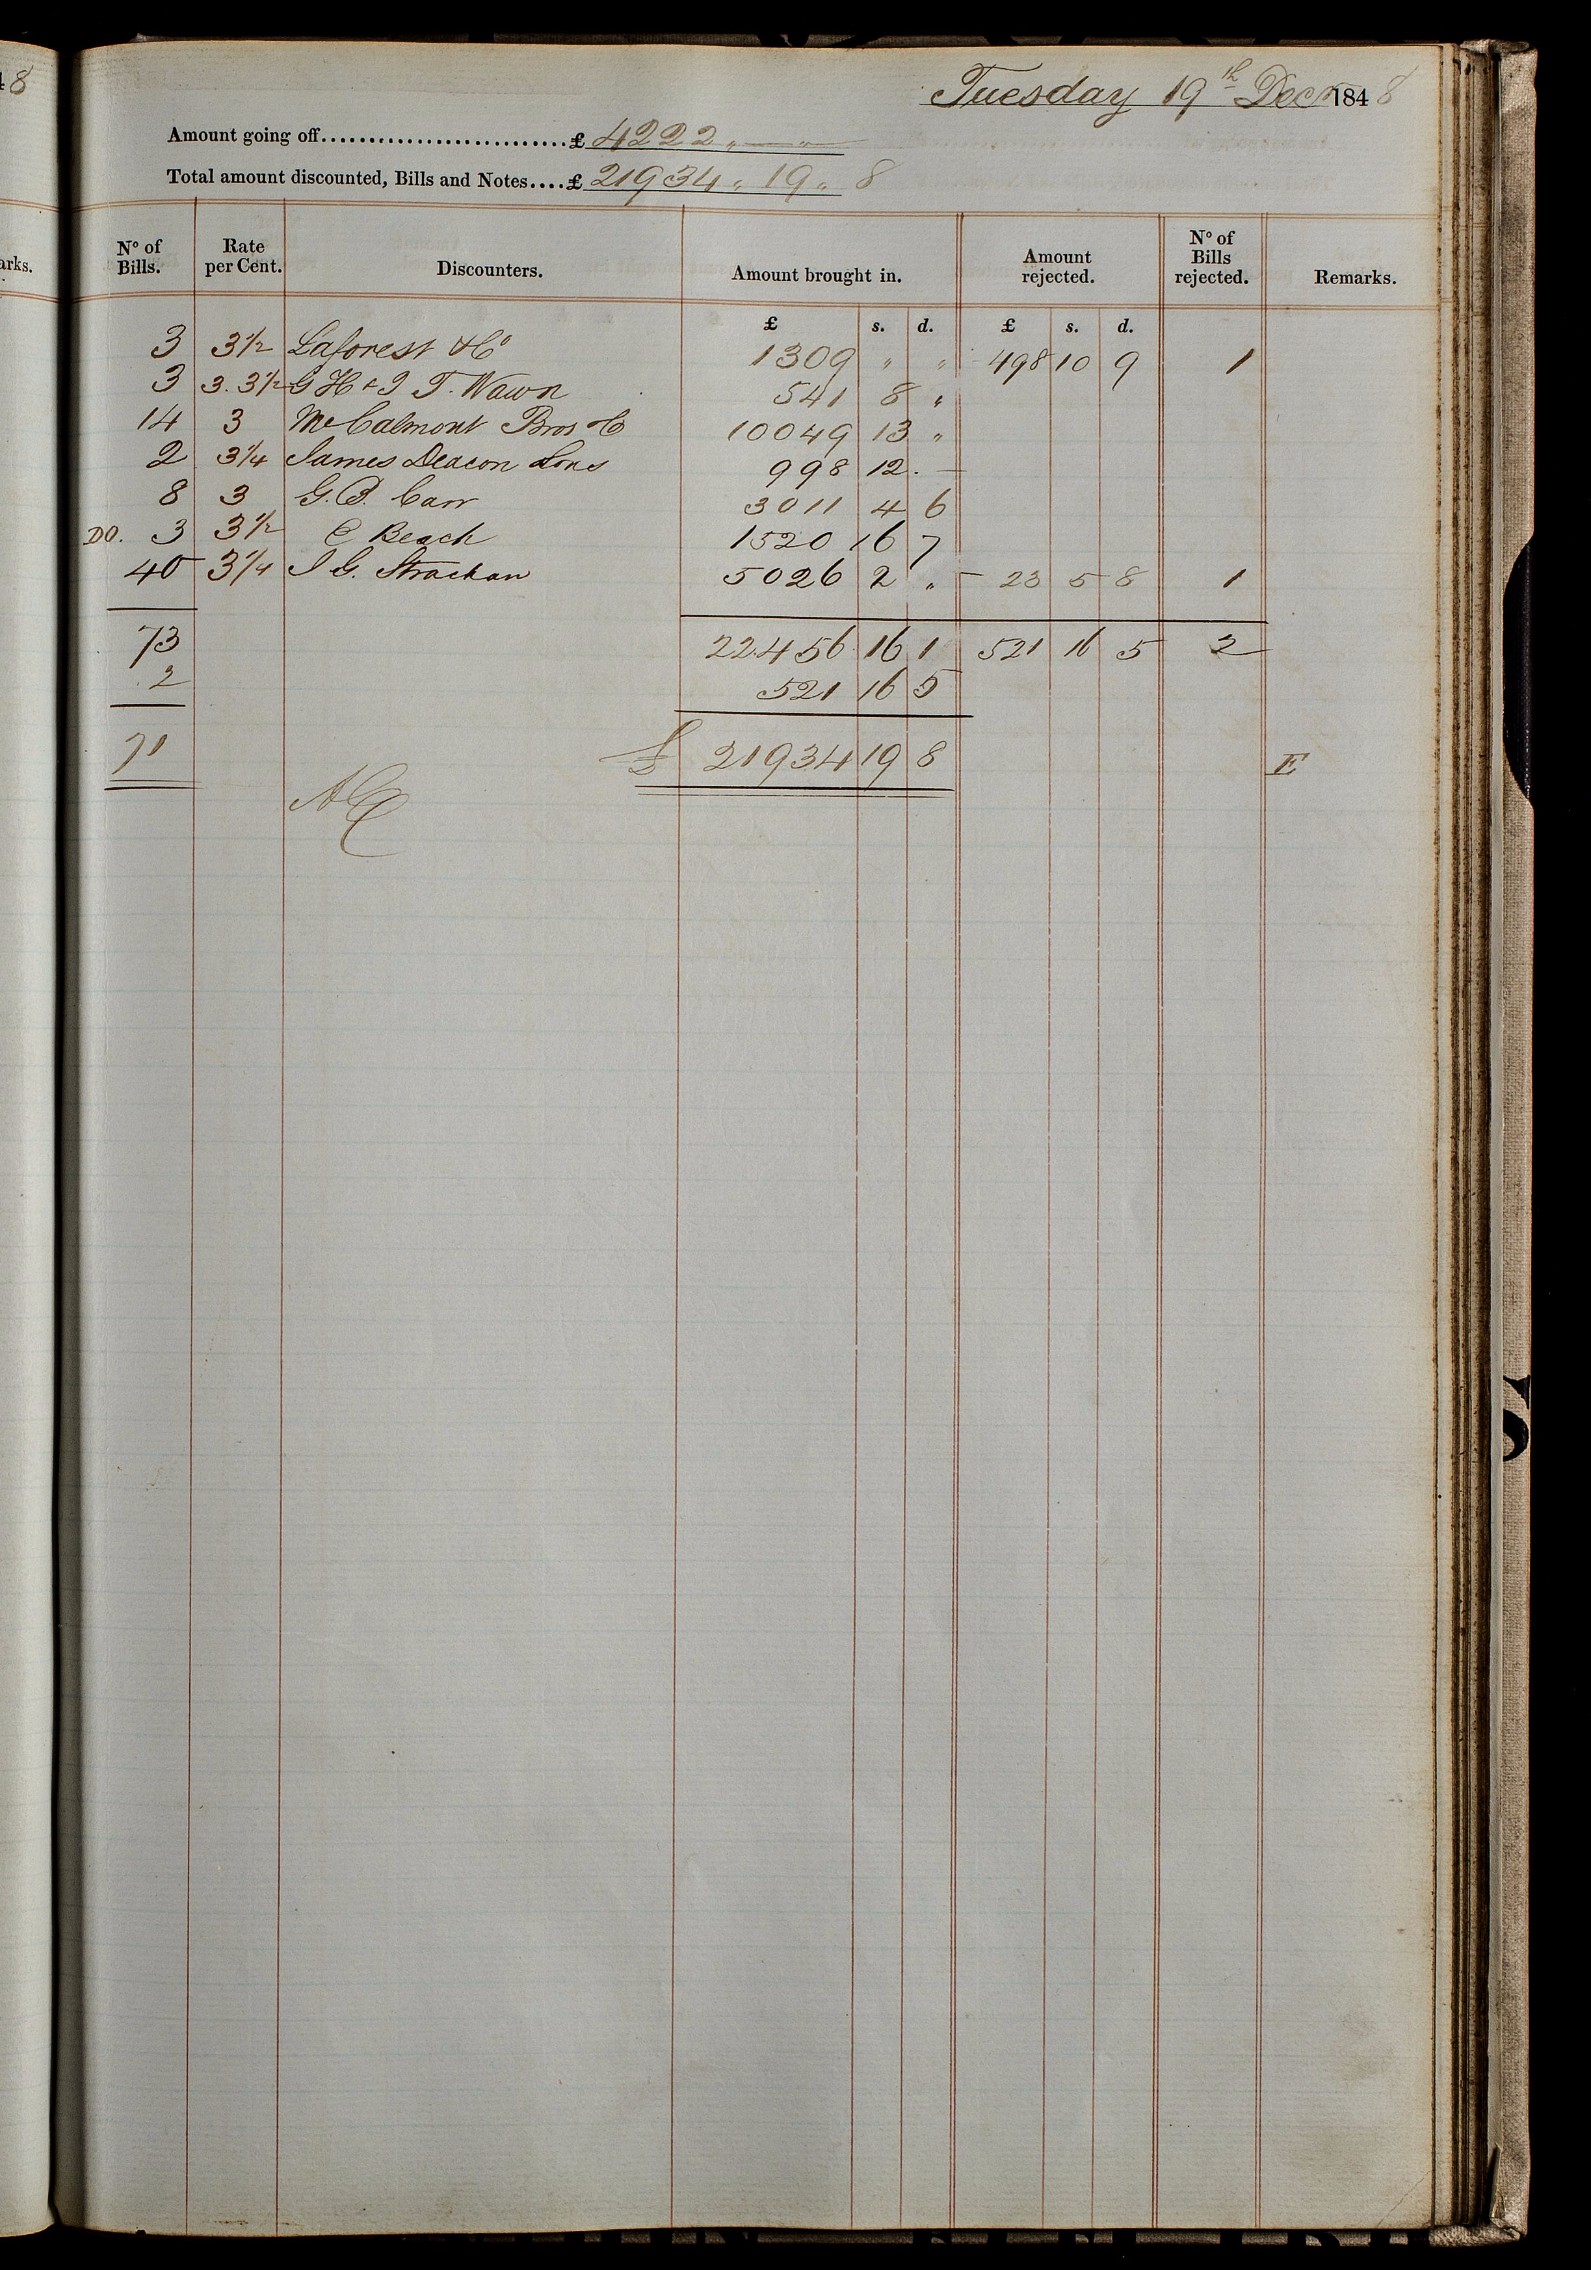 48
arks.
Tuesday 19th Decr 1848
Amount going off...........................£ 4222 " — "
Total amount discounted, Bills and Notes....£ 21934 " 19 " 8
No of Bills. Rate per Cent. Discounters. Amount brought in. Amount rejected. No of Bills rejected. Remarks.
£ s. d. £ s. d.
3 3 1/2 Laforest & Co 1309 " " 498 10 9 1
3 3. 3 1/2 G H & I T. Wawn 541 8 "
14 3 McCalmont Bros & Co 10049 13 "
2 3 1/4 James Deacon Sons 998 12 . —
8 3 G. B. Carr 3011 4 6
DO. 3 3 1/2 C Beach 1520 16 7
40 3 1/4 I G. Strachan 5026 2 " — 23 5 8 1
73 22.456 16 1 521 16 5 2
2 521 16 5
71 £ 21934 19 8 E